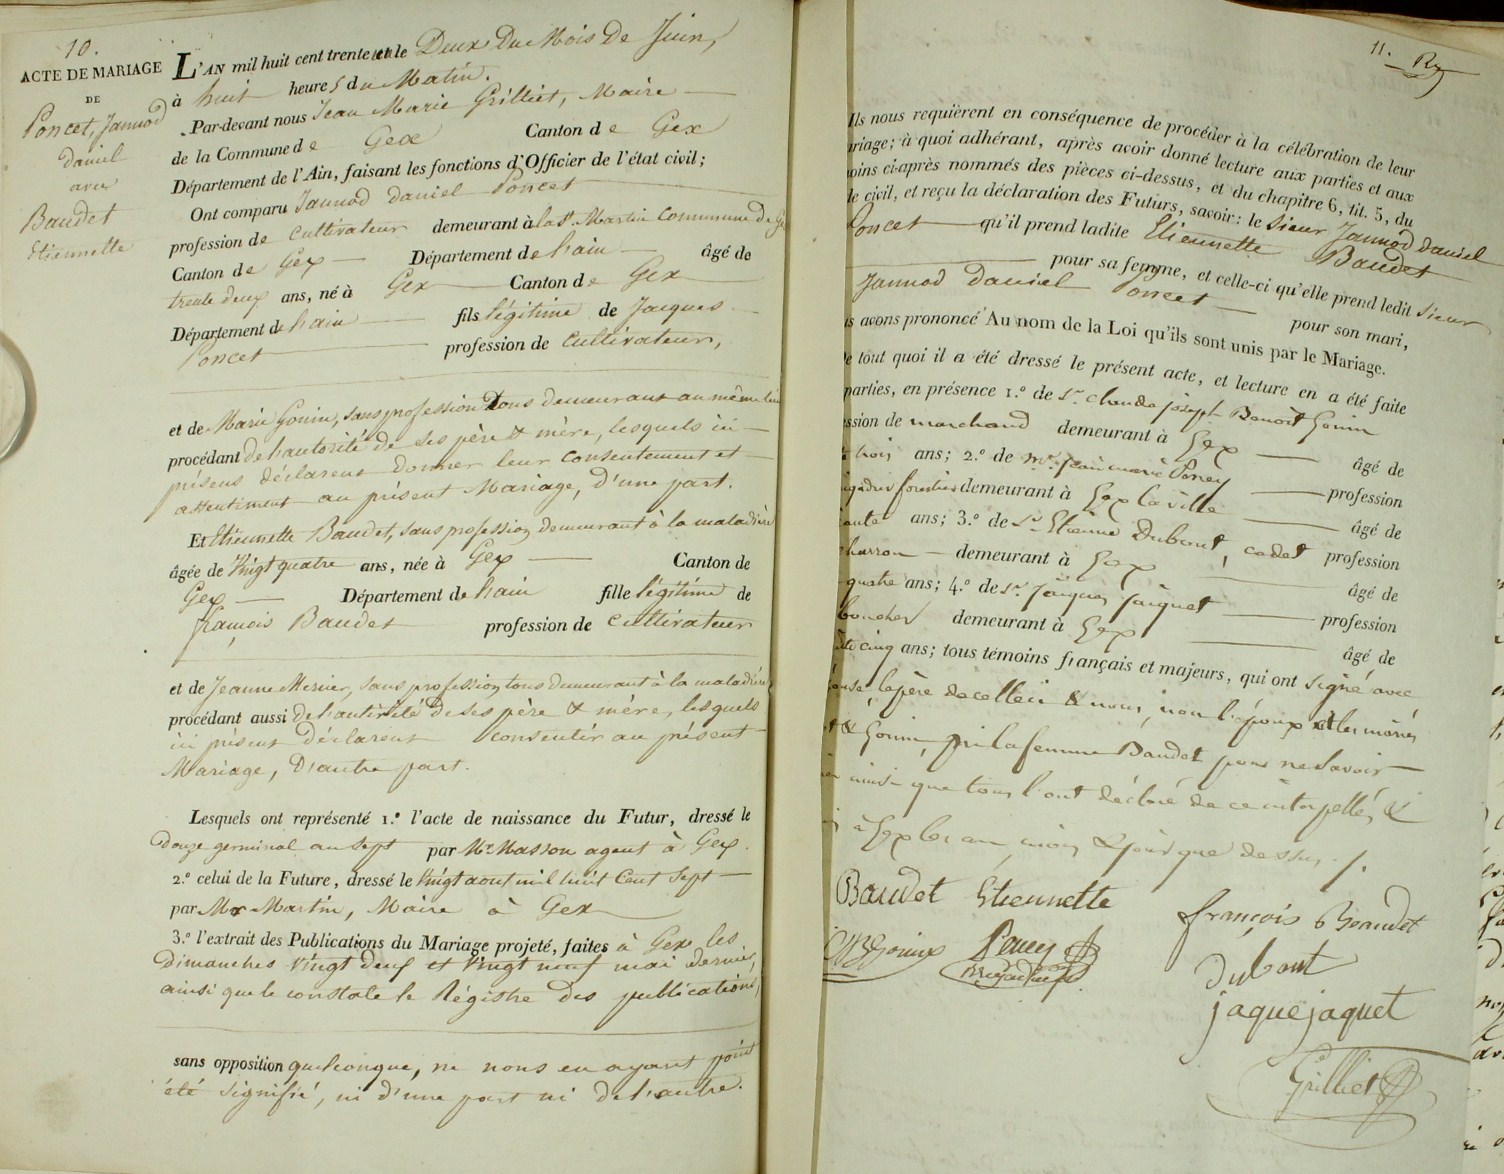 10.
ACTE DE MARIAGE
DE
Poncet, Jannod
daniel
avec
Baudet
Etiennette
L'AN mil huit cent trente un le Deux Du Mois De Juin,
à huit heures du Matin.
Par-devant nous Jean Marie Grilliet, Maire
de la Commune de Gex Canton de Gex
Département de l'Ain, faisant les fonctions d'Officier de l'état civil;
Ont comparu Jannod Daniel Poncet
profession de Cultivateur demeurant à la St. Martin Commune De Gex
Canton de Gex Département de l'ain âgé de
trente deux ans, né à Gex Canton de Gex
Département de l'ain fils légitime de Jacques
Poncet profession de Cultivateur,
et de Marie Gonin, sans profession Tous demeurant au même lieu
procédant de l'autorité de ses père & mère, lesquels ici
présens déclarent donner leur Consentement et
assentiment au présent Mariage, D'une part.
Et Etiennette Baudet, sans profession demeurant à la maladière
âgée de Vingt quatre ans, née à Gex Canton de
Gex Département de l'ain fille légitime de
françois Baudet profession de Cultivateur
et de Jeanne Mesner, sans profession tous demeurant à la maladière
procédant aussi de l'autorité de ses père & mère, lesquels
ici présens Déclarent consentir au présent
Mariage, D'autre part.
Lesquels ont représenté 1.º l'acte de naissance du Futur, dressé le
Douze germinal an sept par Mr. Masson agent à Gex.
2.º celui de la Future, dressé le Vingt aout mil huit Cent Sept
par Mr Martin, Maire à Gex
3.º l'extrait des Publications du Mariage projeté, faites à Gex les
Dimanches Vingt deux et Vingt neuf mai dernier,
ainsi que le constate le Régistre des publications,
sans opposition quelconque, ne nous en ayant point
été signifié, ni d'une part ni de l'autre.
11.
Ils nous requièrent en conséquence de procéder à la célébration de leur
riage; à quoi adhérant, après avoir donné lecture aux parties et aux
oins ci-après nommés des pièces ci-dessus, et du chapitre 6, tit. 5, du
de civil, et reçu la déclaration des Futurs, savoir: le Sieur Jannod Daniel
Poncet qu'il prend ladite Etiennette Baudet
pour sa femme, et celle-ci qu'elle prend ledit Sieur
Jannod Daniel Poncet pour son mari,
us avons prononcé Au nom de la Loi qu'ils sont unis par le Mariage.
De tout quoi il a été dressé le présent acte, et lecture en a été faite
parties, en présence 1.º de Sr. Claude joseph Benoit Gonin
ession de marchand demeurant à Gex âgé de
trois ans; 2.º de Mr. Jean marie Poncy profession
igadier forestier demeurant à Gex la ville âgé de
ante ans; 3.º de Sr. Etienne Dubout, cadet profession
charron demeurant à Gex âgé de
quatre ans; 4.º de Sr. Jâques Jaquet profession
boucher demeurant à Gex âgé de
cinq ans; tous témoins français et majeurs, qui ont signé avec
ouse, le père de celle ci & nous, non l'époux et les mariés
& Gonin, ni la femme Baudet pour ne savoir
ainsi que tous l'ont déclaré de ce interpellés, &
à Gex les an, mois & jour que dessus.
Baudet Etiennette
françois Beaudet
Gonin
Poncy
Dubout
jaque jaquet
Grilliet